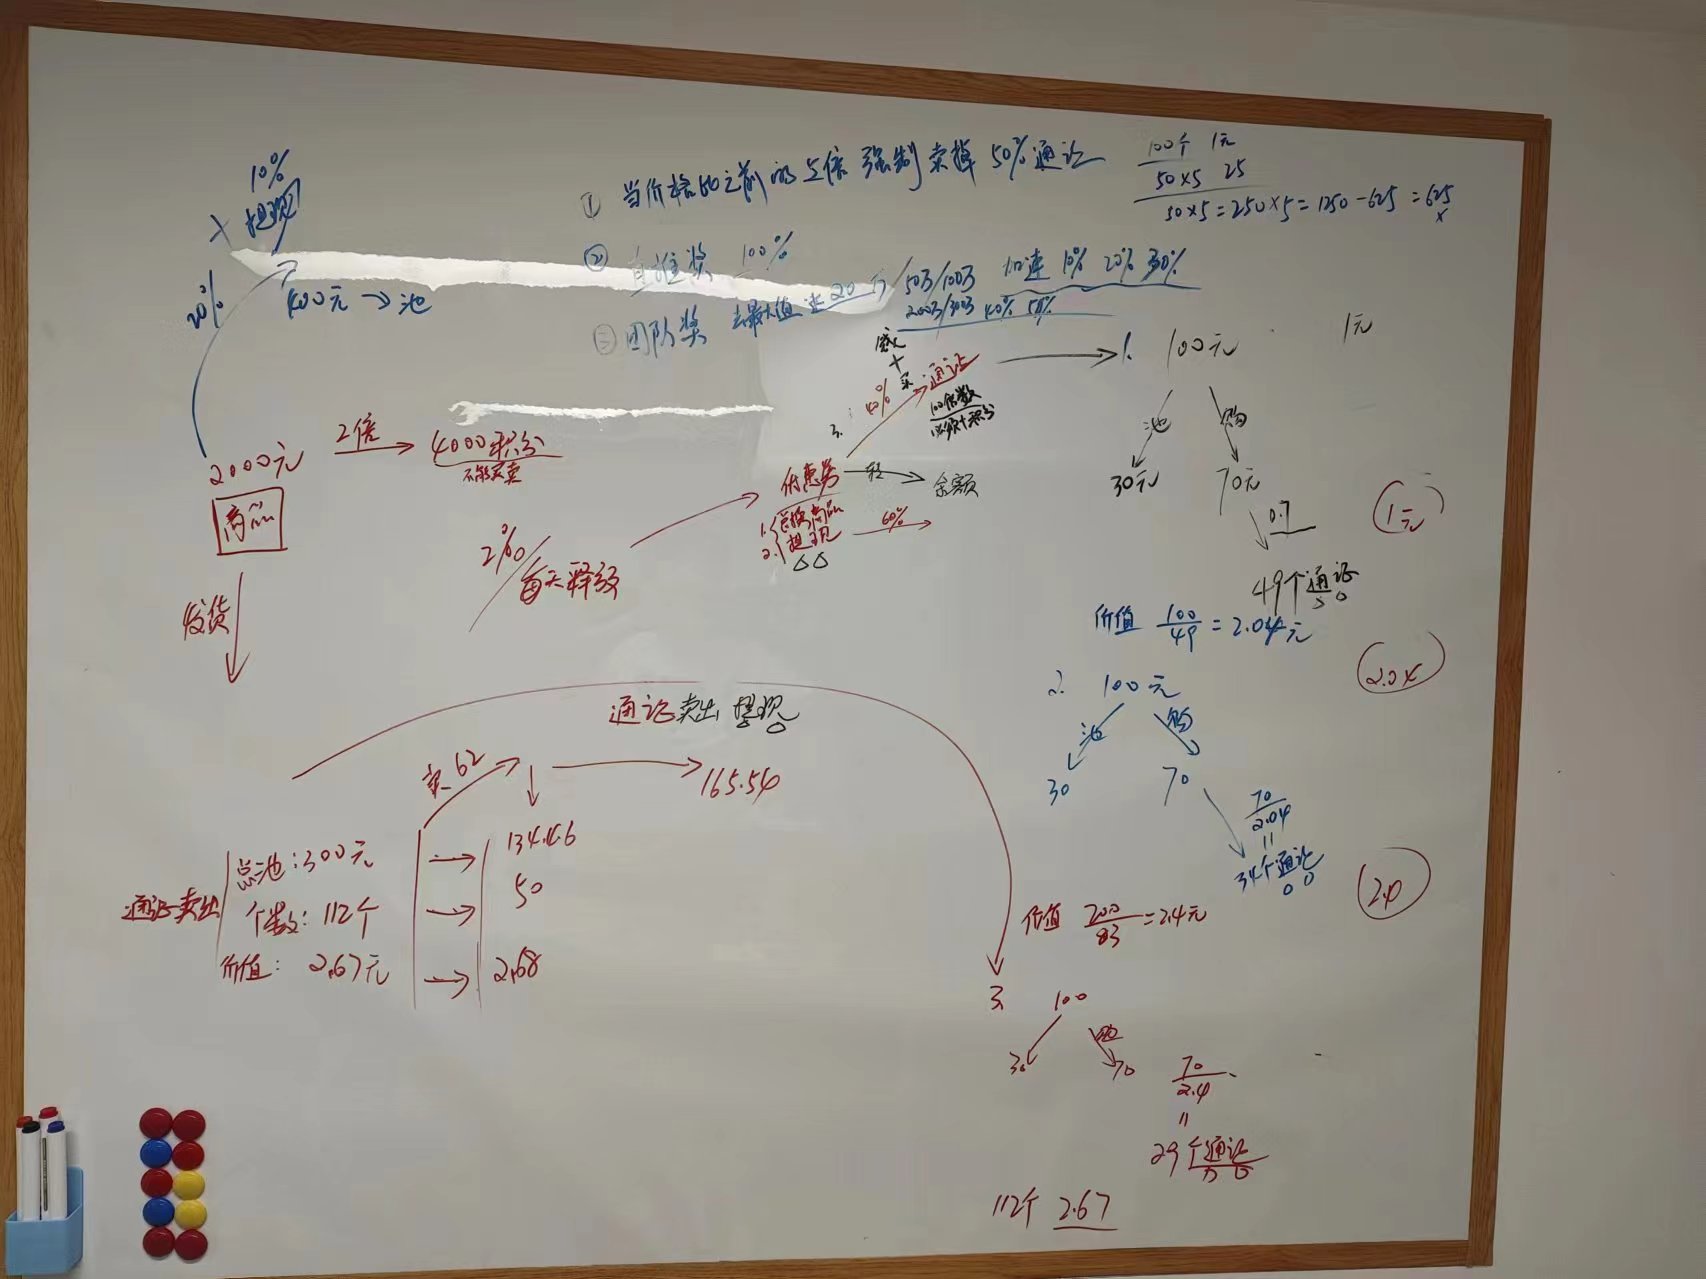 10%
提现
20%
400元→池
① 当价格的之前的5倍 强制卖掉 50%通证
② 直推奖 100%
③ 团队奖 去最大值
20万/50万/100万 加速 10% 20% 30%
200万/300万 40% 50%
100个 1元
50×5 25
50×5=250×5=1250-625=625
2000元
2倍
4000积分
不能买卖
商品
发货
2%
每天释放
优惠券
1.
商品
2. 提现
60%
转
余额
3.
40%
买
通证
100倍数
积分
1. 100元
1元
池
购
30元
70元
0.7
49个通证
1元
价值 100/49=2.04元
2.04
2. 100元
池
购
30
70
70/2.04
=
34个通证
2.4
价值 200/83=2.4元
3. 100
购
30
70
70/2.4
=
29个通证
112个 2.67
通证卖出 提现
卖 62
165.54
通证卖出
总池:300元 → 134.46
个数:112个 → 50
价值:2.67元 → 2.68